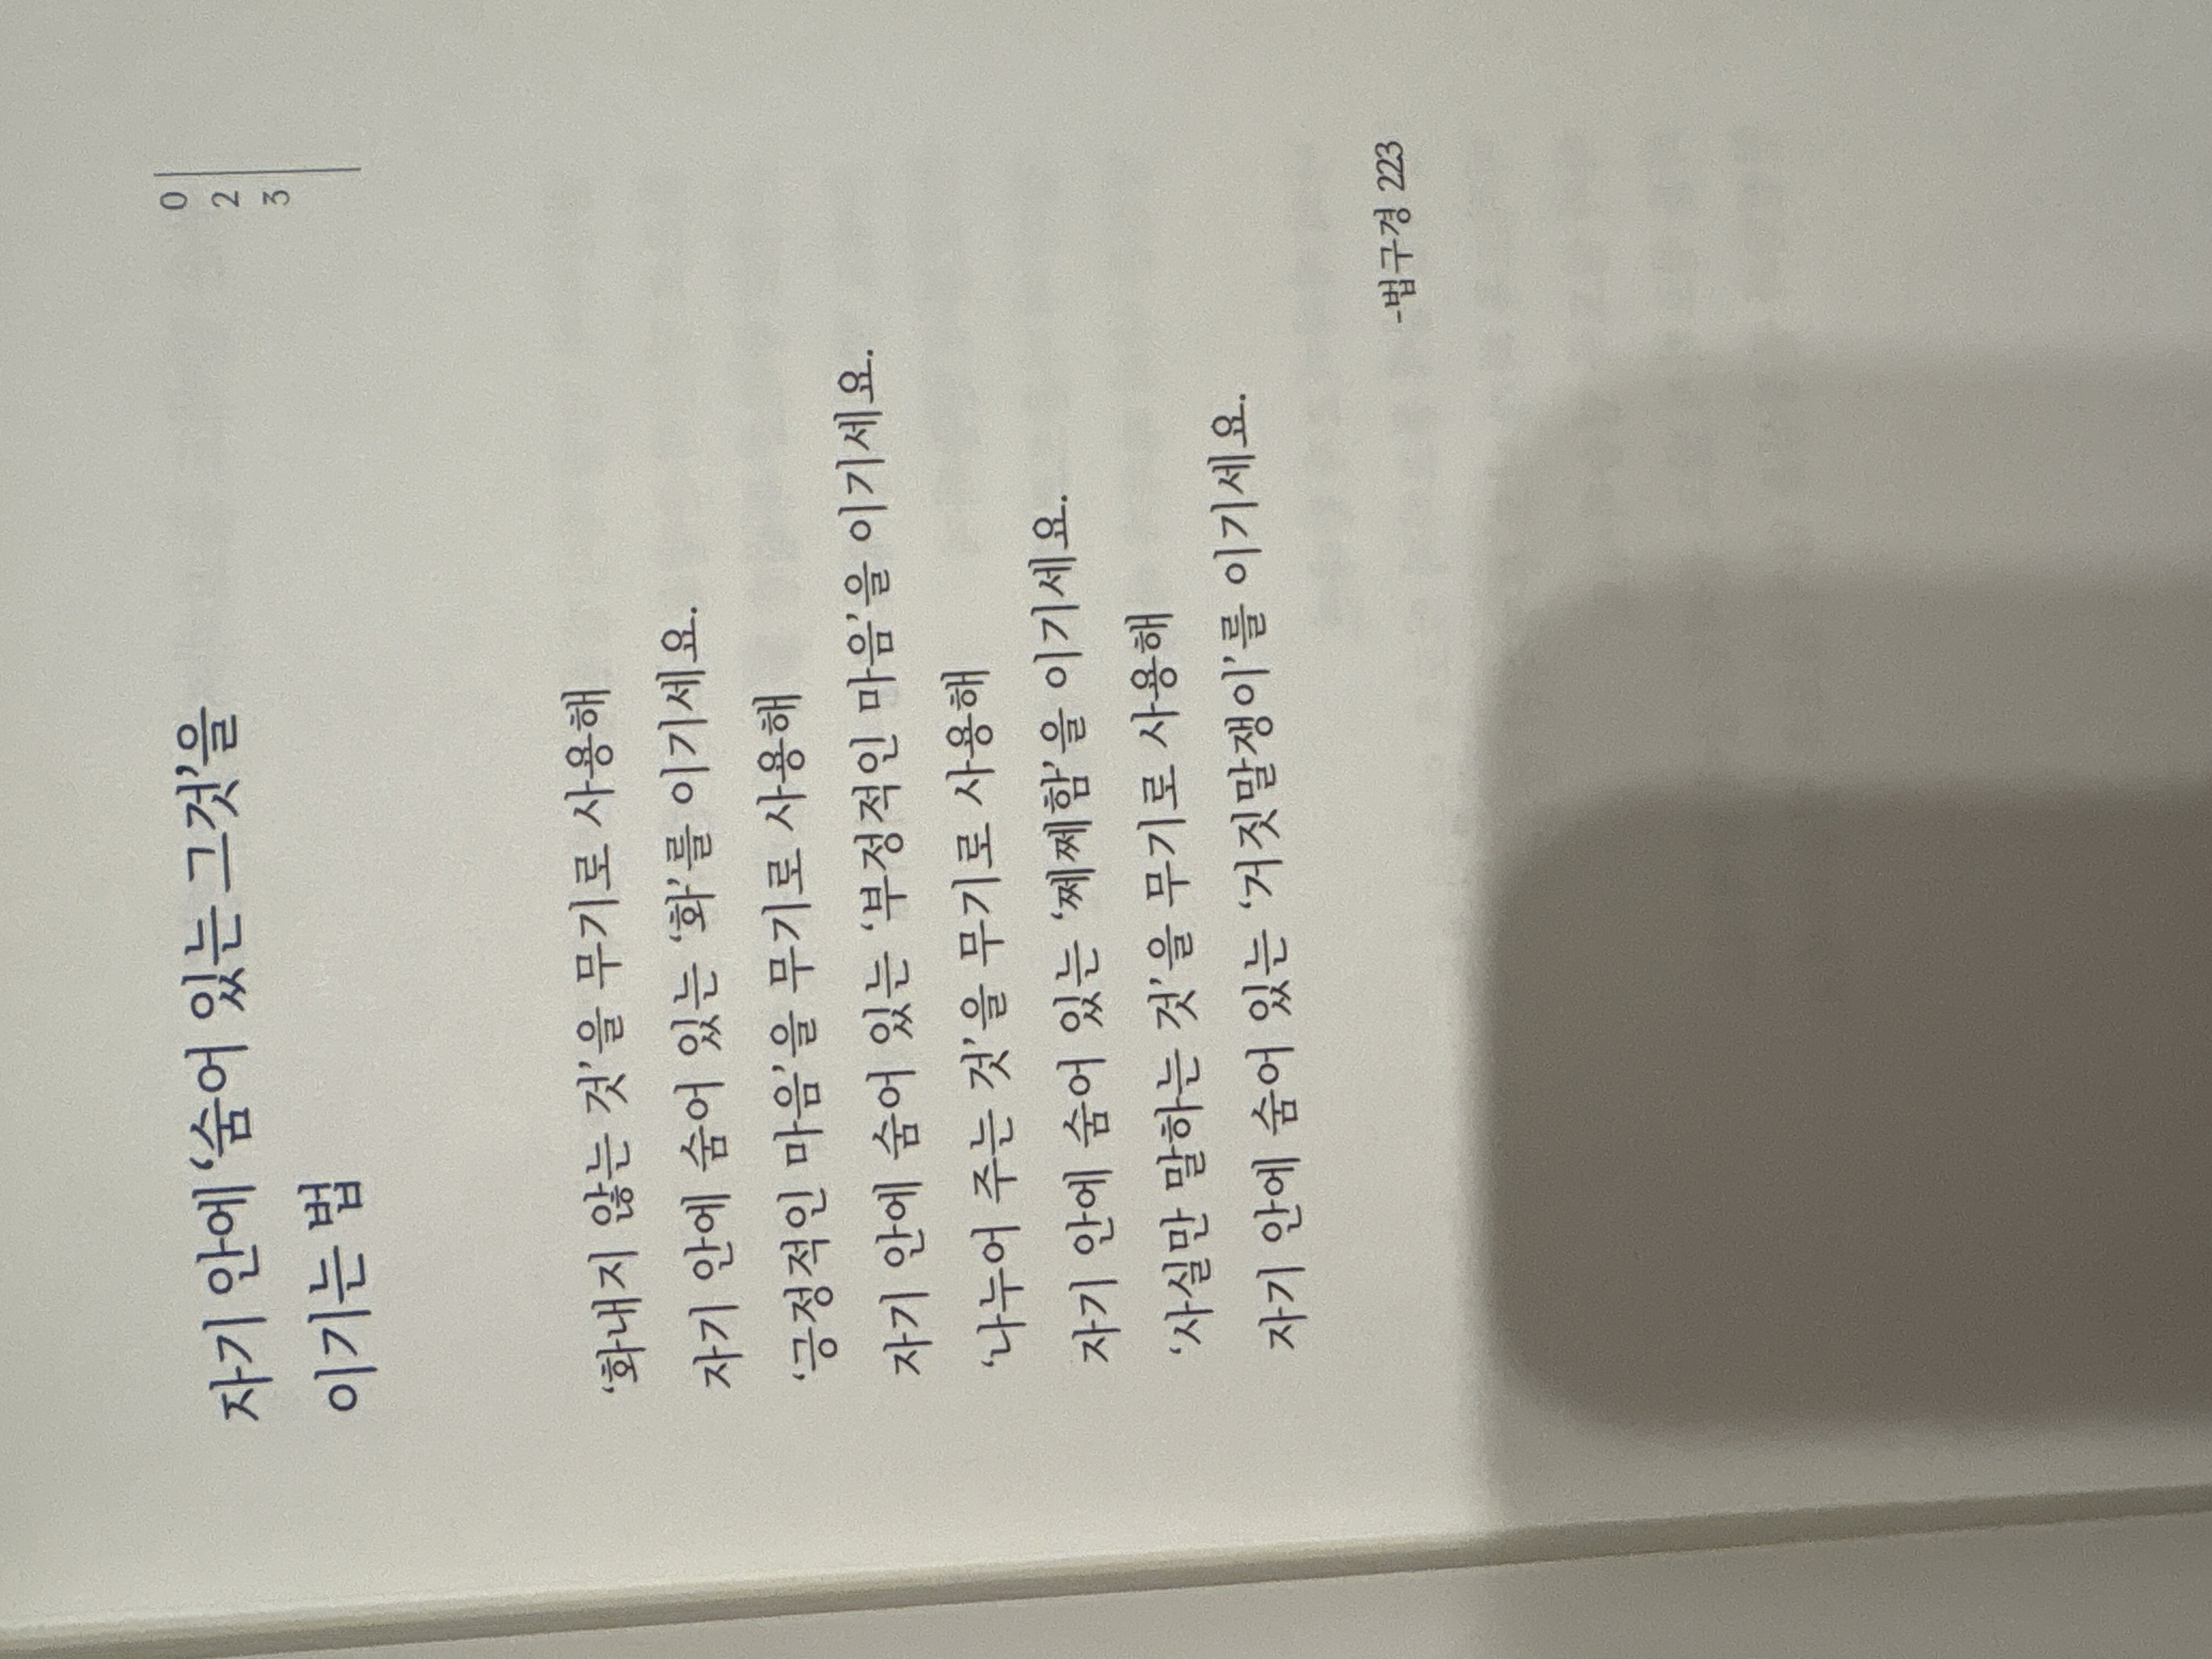 023
자기 안에 ‘숨어 있는 그것’을
이기는 법
‘화내지 않는 것’을 무기로 사용해
자기 안에 숨어 있는 ‘화’를 이기세요.
‘긍정적인 마음’을 무기로 사용해
자기 안에 숨어 있는 ‘부정적인 마음’을 이기세요.
‘나누어 주는 것’을 무기로 사용해
자기 안에 숨어 있는 ‘쩨쩨함’을 이기세요.
‘사실만 말하는 것’을 무기로 사용해
자기 안에 숨어 있는 ‘거짓말쟁이’를 이기세요.
-법구경 223